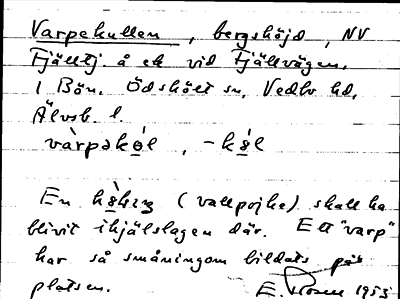 Varpekullen, bergshöjd, NV
Fjälltj. å ek vid Fjällvägen.
i Bön. Ödskölt sn, Vedbo hd,
Älvsb. l.
vàrpəkó̤l, -kó̤l
En (vallpojke) skall ha
blivit ihjälslagen där. Ett "varp"
har så småningom bildats på
platsen. E. 1953